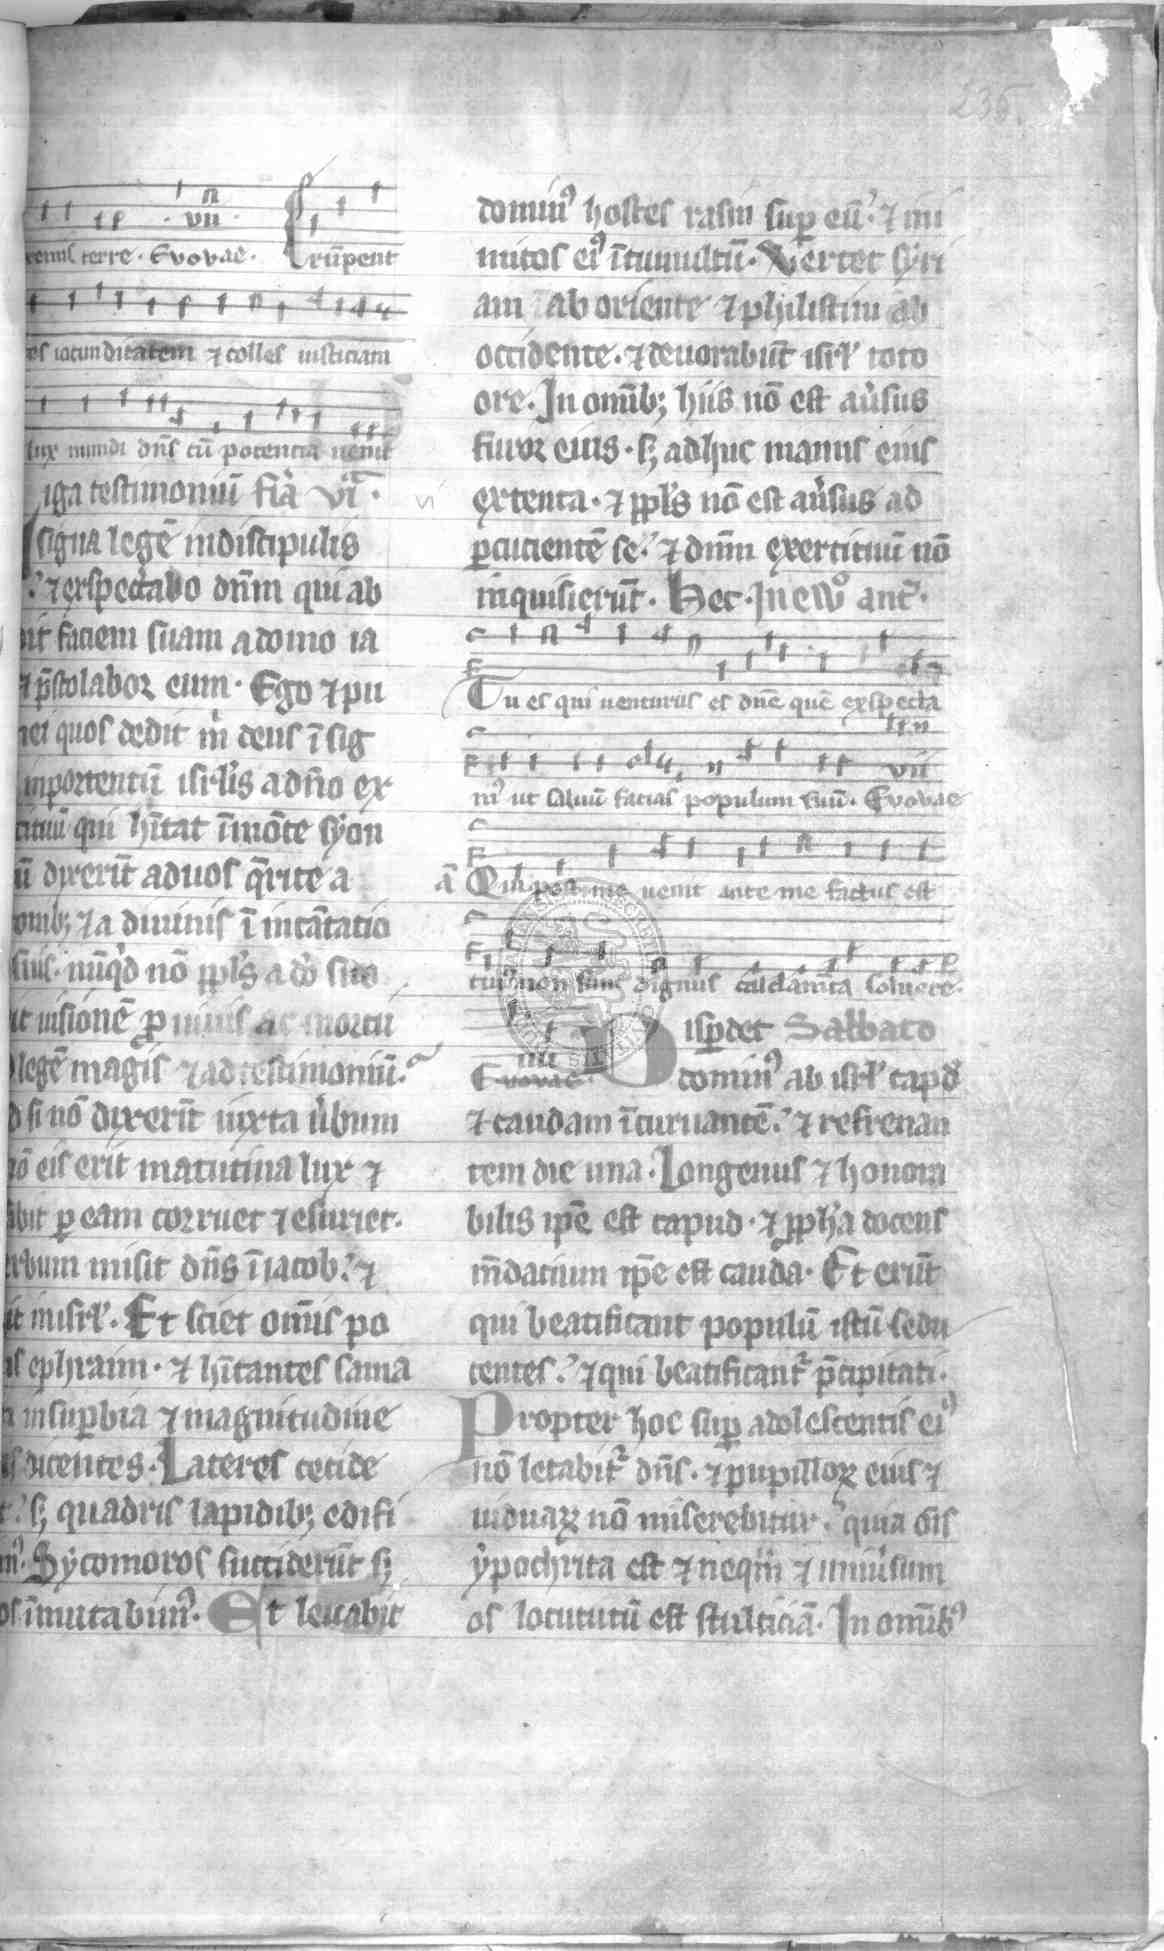 235.
vii
terre. Evovae. Erūpent
iocunditatem ⁊ colles iusticiam
lux mundi dn̄s cū potencia uenit
iga testimoniū fia vi
signa legē in discipulis
⁊ exspectabo dnm̄ qui ab
faciem suam a domo ia
⁊ p̄stolabor eum. Ego ⁊ pu
mei quos dedit m̄ deus ī sig
in portentū isrl̄is a dn̄o ex
qui hītat ī mōte syon
dixerīt ad uos q̄rite a
⁊ a diuinis ī incātatio
nūqd nō ppl̄s a dō suo
uisionē pro uiuis ac mortu
legē magis ⁊ ad testimoniū.
si nō dixerīt iuxta ūbum
eis erit matutina lux ⁊
p eam corruet ⁊ esuriet.
erbum misit dn̄s ī iacob. ⁊
in isrl̄. Et sciet om̄is po
ephraim. ⁊ hītantes sama
in supbia ⁊ magnitudine
dicentes. Lateres cecide
sꝫ quadris lapidibꝫ edifi
Sycomoros succiderūt sꝫ
īmutabim᾿. Et leuabit
domin᾿ hostes rasin sup eū. ⁊ ini
micos ei᾿ ī tumultū. Vertet syri
am ab oriente ⁊ philistim ab
occidente. ⁊ deuorabūt isrl̄ toto
ore. In omībꝫ hiis nō est aūsus
furor eius. sꝫ adhuc manus eius
extenta. ⁊ ppl̄s nō est aūsus ad
pcucientē se. ⁊ dnm̄ exercituū nō
inquisierūt. Hec. In ewo ant̄.
Tu es qui uenturus es dn̄e quē exspecta
m᾿ ut saluū facias populum tuū. Evovae
vii
ā Qui post me uenit ante me factus est
cui᾿ non sum dignus calciam̄ta soluere.
Disp̄det Sabbato
iiii
Evovae. domin᾿ ab isrl̄ capd
⁊ caudam īcuruantē. ⁊ refrenan
tem die una. Longeuus ⁊ honora
bilis ipē est capud. ⁊ ppha docens
m̄dacium ip̄e est cauda. Et erūt
qui beatificant populū istū sedu
centes. ⁊ qui beatificant᾿ p̄cipitati.
Propter hoc sup adolescentis ei᾿
nō letabit᾿ dn̄s. ⁊ pupilloꝝ eius ⁊
uiduaꝝ nō miserebitur. quia oīs
ypochrita est ⁊ neqm̄ ⁊ uniūsum
os locututū est stulticiā. In omīb᾿